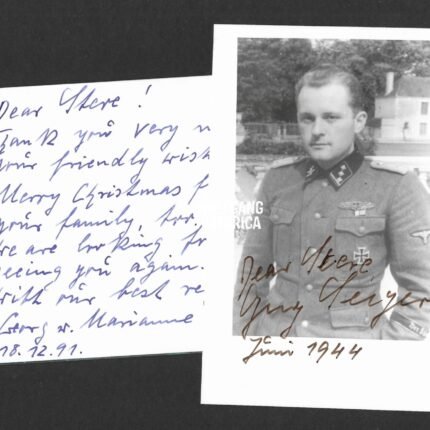 Dear Steve !
Thank you very m
your friendly wish
Merry Christmas f
your family, too.
We are looking fo
seeing you again.
With our best re
Georg u. Marianne
18.12.91.
ANG
RICA
Dear Steve
Juni 1944